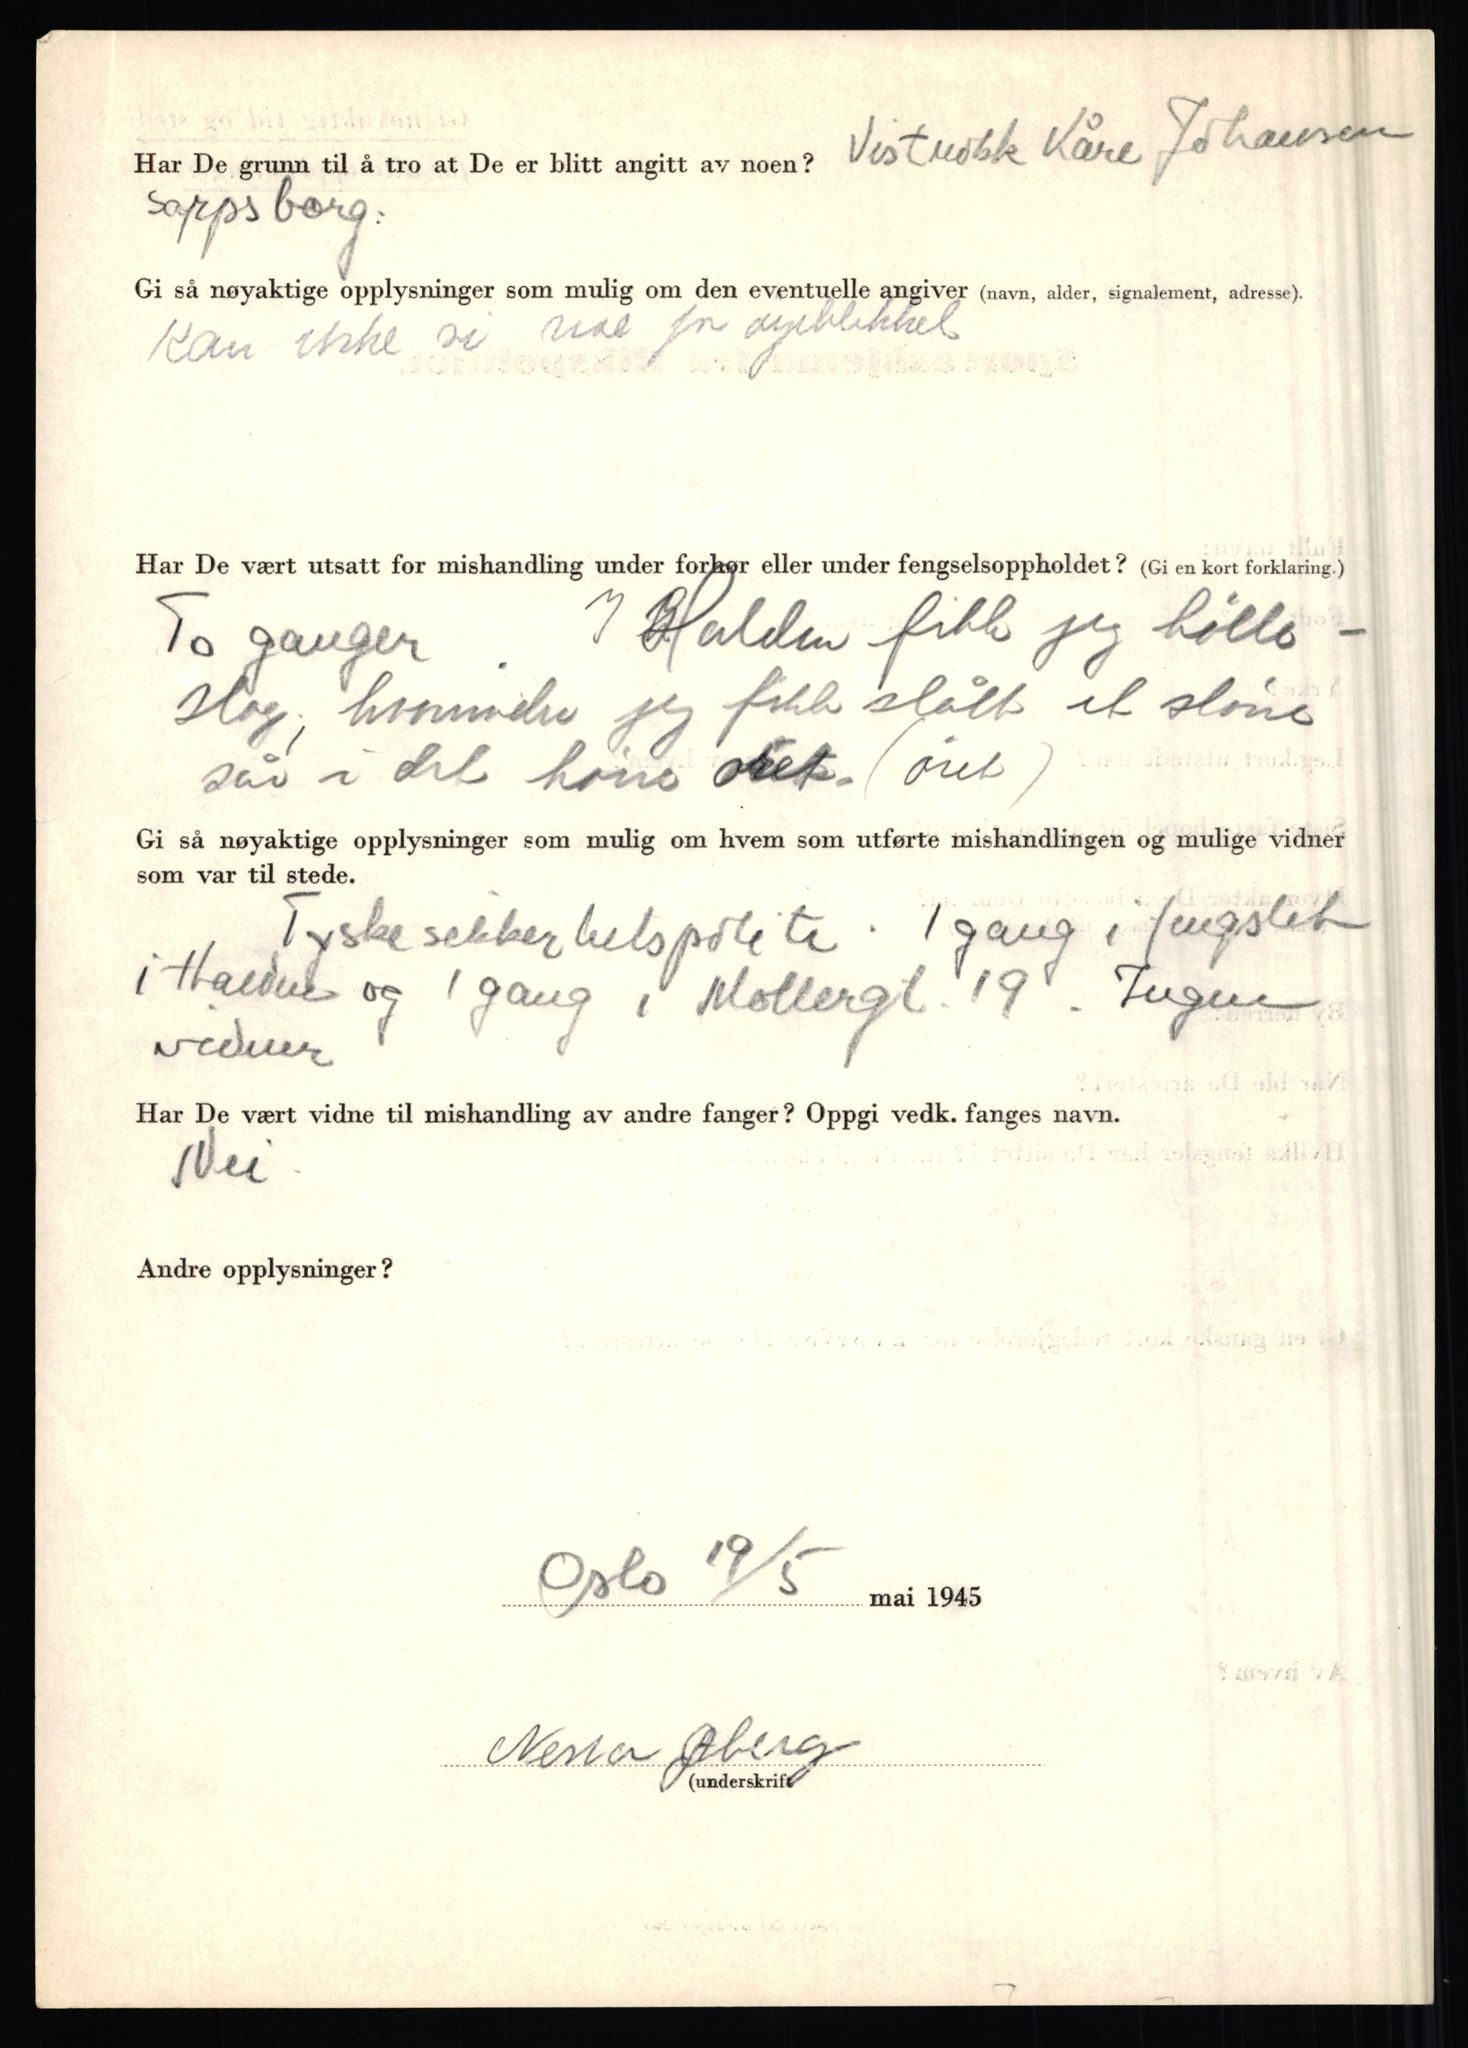 Har De grunn til å tro at De er blitt angitt av noen? Vistnokk Kåre Johansen
sarpsborg.
Gi så nøyaktige opplysninger som mulig om den eventuelle angiver (navn, alder, signalement, adresse).
Kan ikke si noe for øyeblikket
Har De vært utsatt for mishandling under forhør eller under fengselsoppholdet? (Gi en kort forklaring.)
To ganger. I Halden fikk jeg kølle-
slag, hvorunder jeg fikk slått et större
sår i det höire (öret)
Gi så nøyaktige opplysninger som mulig om hvem som utførte mishandlingen og mulige vidner
som var til stede.
Tyske sikkerhetspoliti. 1 gang i fengslet
i Halden og 1 gang i Møllergt. 19. Ingen
vidner
Har De vært vidne til mishandling av andre fanger? Oppgi vedk. fanges navn.
Nei.
Andre opplysninger?
Oslo 19/5 mai 1945
Øberg
(underskrift